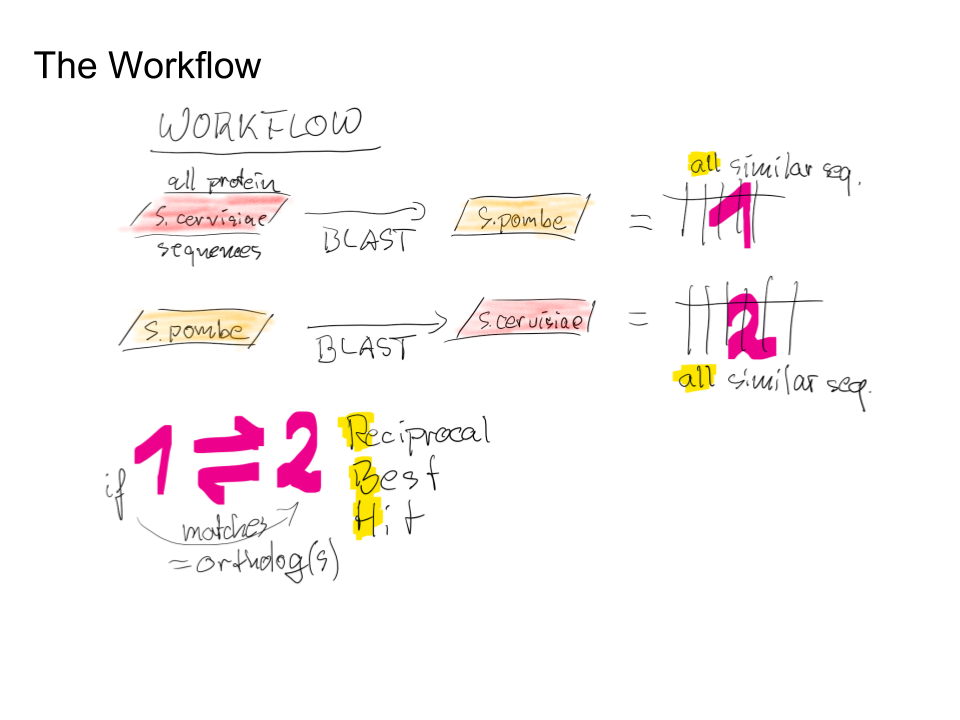 The Workflow
WORKFLOW
all protein
S. cervisiae
sequences
BLAST
S.pombe
=
all similar seq.
1
S.pombe
BLAST
S.cervisiae
=
2
all similar seq.
if 1 ⇌ 2
matches
= ortholog(s)
Reciprocal
Best
Hit